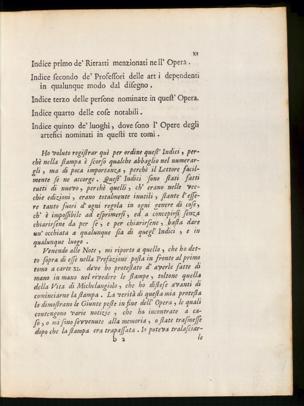 xi
Indice primo de' Ritratti menzionati nell' Opera.
Indice secondo de' Professori delle arti dependenti
in qualunque modo dal disegno.
Indice terzo delle persone nominate in quest' Opera.
Indice quarto delle cose notabili.
Indice quinto de' luoghi, dove sono l' Opere degli
artefici nominati in questi tre tomi.
Ho voluto registrar quì per ordine quest' Indici, per-
chè nella stampa è scorso qualche abbaglio nel numerar-
gli, ma di poca importanza, perchè il Lettore facil-
mente se ne accorge. Quest' Indici sono stati fatti
tutti di nuovo, perchè quelli, ch' erano nelle vec-
chie edizioni, erano totalmente inutili, stante l' esse-
re tanto fuori d' ogni regola in ogni genere di cose,
ch' è impossibile ad esprimersi, ed a concepirsi senza
chiarirsene da per se, e per chiarirsene, basta dare
un' occhiata a qualunque sia di quegl' Indici, e in
qualunque luogo.
Venendo alle Note, mi riporto a quello, che ho det-
to sopra di esse nella Prefazione posta in fronte al primo
tomo a carte dove ho protestato d' averle fatte di
mano in mano nel rivedere le stampe, toltone quella
della Vita di Michelangiolo, che ho distese avanti di
cominciarne la stampa. La verità di questa mia protesta
le dimostrano le Giunte poste in fine dell' Opera, le quali
contengono varie notizie, che ho incontrate a ca-
so, o mi sono sovvenute alla memoria, o state trasmesse
dopo che la stampa era trapassata. Io poteva tralasciar-
b 2
le